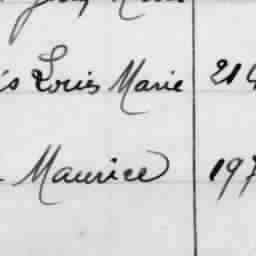 is Louis Marie 214
Maurice 197